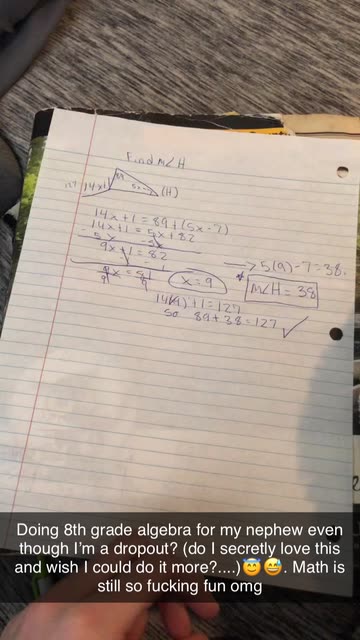 Find m∠H
127 14x+1 89 5x-7 (H)
14x+1=89+(5x-7)
14x+1=5x+82
-5x -5x
9x+1=82
9x=81
9 9
x=9
→ 5(9)-7=38.
* m∠H=38
14(9)+1=127
so 89+38=127 ✓
Doing 8th grade algebra for my nephew even
though I’m a dropout? (do I secretly love this
and wish I could do it more?....)😇😅. Math is
still so fucking fun omg